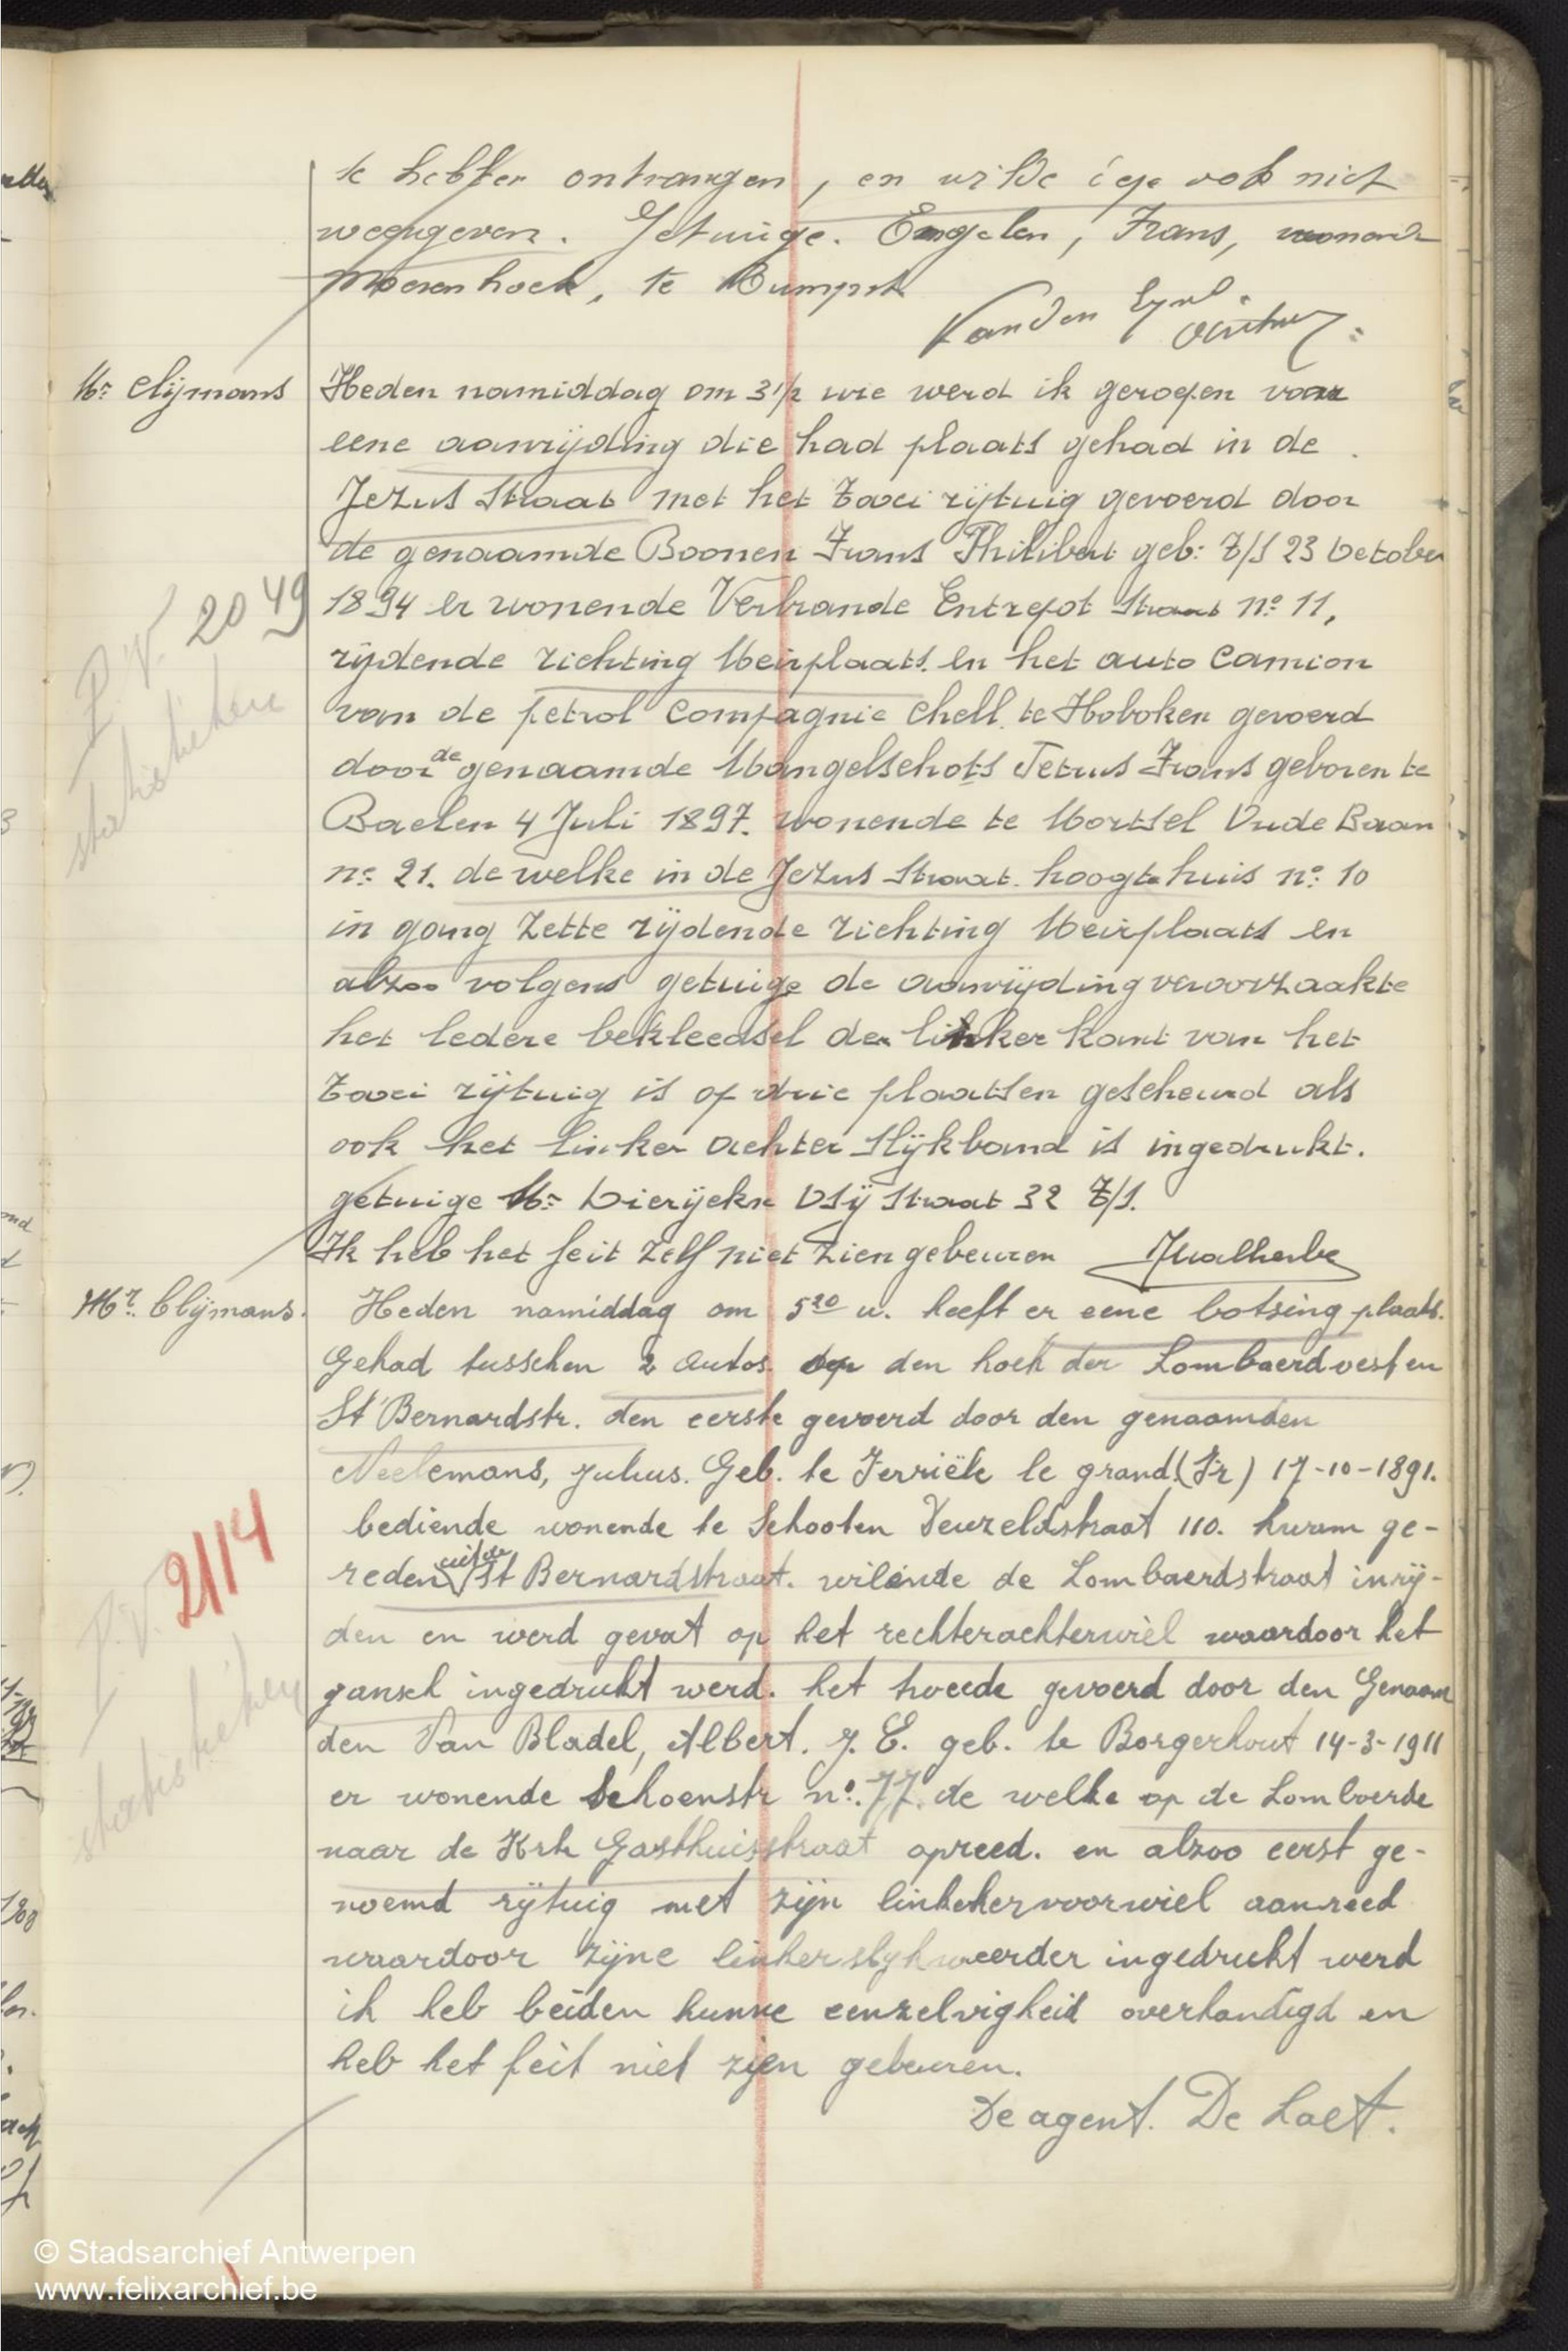 te hebben ontvangen, en wilde ook niet
weggeven. Getuige. Engelen, Frans, wonend
Moerenhoek, te Rumpst
Van den Eynd
Mr Clijmans
Heden namiddag om 3 1/2 ure werd ik geroepen voor
eene aanrijding die had plaats gehad in de
Jezus Straat met het taxi rijtuig gevoerd door
de genaamde Boonen Frans Philibert geb: t/s 23 October
1894 er wonende Verbrande Entrepot Straat no 11,
P.V. 2049
statistieken
rijdende richting Meirplaats. en het auto camion
van de petrol compagnie Chell. te Hoboken gevoerd
door de genaamde Mangelschots Petrus Frans geboren te
Baelen 4 Juli 1897. wonende te Mortsel Oude Baan
no 21. de welke in de Jezus Straat. hoogte huis no: 10
in gang zette rijdende richting Meirplaats en
alzoo volgens getuige de aanrijding veroorzaakte
het ledere bekleedsel der linker kant van het
taxi rijtuig is op drie plaatsen gescheurd als
ook het linker achter slijkband is ingedrukt.
getuige Mr Dierijcksc Dijstraat 32 t/s.
Ik heb het feit zelf niet zien gebeuren Malherbe
Mr Clijmans.
Heden namiddag om 5 20 u. heeft er eene botsing plaats.
Gehad tusschen 2 autos. op den hoek der Lombaerdvest en
St Bernardstr. den eerste gevoerd door den genaamden
Neelemans, Julius. Geb. te Ferrièle le grand (Fr) 17-10-1891.
bediende wonende te Schooten Deuzeldstraat 110. kwam ge-
reden uit de St Bernardstraat. wilende de Lombaerdstraat inrij-
P.V. 2114
statistieken
den en werd gevat op het rechterachterwiel waardoor het
gansch ingedrukt werd. het tweede gevoerd door den Genaam
den Van Bladel, Albert. J. E. geb. te Borgerhout 14-3-1911
er wonende Schoenstr no. 77. de welke op de Lombaerde
naar de Krte Gasthuisstraat opreed. en alzoo eerst ge-
noemd rijtuig met zijn linkekervoorwiel aanreed
waardoor zijne linkerslykweerder ingedrukt werd
ik heb beiden hunne eenzelvigheid overhandigd en
heb het feit niet zien gebeuren.
De agent. De Laet.
© Stadsarchief Antwerpen
www.felixarchief.be